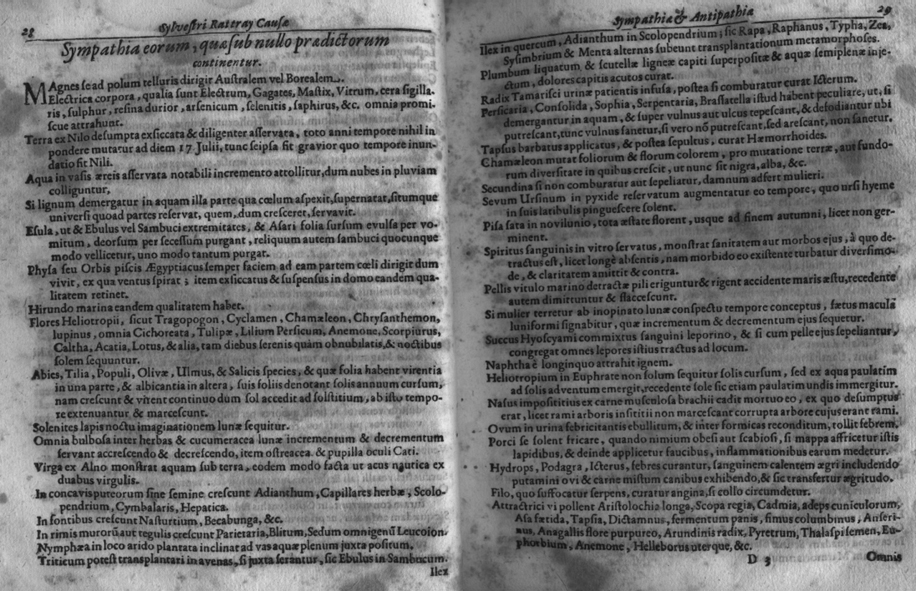 28
Sylvestri Rattray Causæ
Sympathia eorum, quæ sub nullo prædictorum
continentur.
MAgnes sead polum telluris dirigit Australem vel Borealem.
Electrica corpora, qualia sunt Electrum, Gagates, Mastix, Vitrum, cera sigilla-
ris, sulphur, resina durior, arsenicum, selenitis, saphirus, &c. omnia promi-
scue attrahunt.
Terra ex Nilo desumpta exsiccata & diligenter asservata, toto anni tempore nihil in
pondere mutatur ad diem 17 Julii, tunc seipsa fit gravior quo tempore inun-
datio fit Nili.
Aqua in vasis æreis asservata notabili incremento attollitur, dum nubes in pluviam
colliguntur,
Si lignum demergatur in aquam illa parte qua cœlum aspexit, supernatat, situmque
universi quoad partes reservat, quem, dum cresceret, servavit.
Esula, ut & Ebulus vel Sambuci extremitates, & Asari folia sursum evulsa per vo-
mitum, deorsum per secessum purgant, reliquum autem sambuci quocunque
modo vellicetur, uno modo tantum purgat.
Physa seu Orbis piscis Ægyptiacus semper faciem ad eam partem cœli dirigit dum
vivit, ex qua ventus spirat; item exsiccatus & suspensus in domo eandem qua-
litatem retinet.
Hirundo marina eandem qualitatem habet.
Flores Heliotropii, sicut Tragopogon, Cyclamen, Chamæleon, Chrysanthemon,
lupinus, omnia Cichoreata, Tulipæ, Lilium Persicum, Anemone, Scorpiurus,
Caltha, Acatia, Lotus, & alia, tam diebus serenis quàm obnubilatis, & noctibus
solem sequuntur.
Abies, Tilia, Populi, Olivæ, Ulmus, & Salicis species, & quæ folia habent virentia
in una parte, & albicantia in altera, suis foliis denotant solis annuum cursum,
nam crescunt & virent continuo dum sol accedit ad solstitium, ab isto tempo-
re extenuantur & marcescunt.
Solenites lapis noctu imaginationem lunæ sequitur.
Omnia bulbosa inter herbas & cucumeracea lunæ incrementum & decrementum
servant accrescendo & decrescendo, item ostreacea. & pupilla oculi Cati.
Virga ex Alno monstrat aquam sub terra, eodem modo facta ut acus nautica ex
duabus virgulis.
In concavis puteorum sine semine crescunt Adianthum, Capillares herbæ, Scolo-
pendrium, Cymbalaris, Hepatica.
In fontibus crescunt Nasturtium, Becabunga, &c.
In rimis murorũ aut tegulis crescunt Parietaria, Blitum, Sedum omnigenũ Leucoion.
Nymphæa in loco arido plantata inclinat ad vas aquæ plenum juxta positum.
Triticum potest transplantari in avenas, si juxta serantur, sic Ebulus in Sambucum.
Ilex
Sympathiæ & Antipathiæ
29
Ilex in quercum, Adianthum in Scolopendrium; sic Rapa, Raphanus, Typha, Zea,
Sysimbrium & Menta alternas subeunt transplantationum metamorphoses.
Plumbum liquatum, & scutellæ ligneæ capiti superpositæ & aquæ semiplenæ inje-
ctum, dolores capitis acutos curat.
Radix Tamarisci urinæ patientis infusa, postea si comburatur curat Icterum.
Persicaria, Consolida, Sophia, Serpentaria, Brassatella istud habent peculiare, ut, si
demergantur in aquam, & super vulnus aut ulcus tepescant, & defodiantur ubi
putrescant, tunc vulnus sanetur, si vero nõ putrescant, sed arescant, non sanetur.
Tapsus barbatus applicatus, & postea sepultus, curat Hæmorrhoides.
Chamæleon mutat foliorum & florum colorem, pro mutatione terræ, aut fundo-
rum diversitate in quibus crescit, ut nunc sit nigra, alba, &c.
Secundina si non comburatur aut sepeliatur, damnum adfert mulieri.
Sevum Ursinum in pyxide reservatum augmentatur eo tempore, quo ursi hyeme
in suis latibulis pinguescere solent.
Pisa sata in novilunio, tota æstate florent, usque ad finem autumni, licet non ger-
minent.
Spiritus sanguinis in vitro servatus, monstrat sanitatem aut morbos ejus, à quo de-
tractus est, licet longè absentis, nam morbido eo existente turbatur diversimo-
de, & claritatem amittit & contra.
Pellis vitulo marino detractæ pili eriguntur & rigent accidente maris æstu, recedente
autem dimittuntur & flaccescunt.
Si mulier terretur ab inopinato lunæ conspectu tempore conceptus, fœtus maculâ
luniformi signabitur, quæ incrementum & decrementum ejus sequetur.
Succus Hyoscyami commixtus sanguini leporino, & si cum pelle ejus sepeliantur,
congregat omnes lepores istius tractus ad locum.
Naphtha è longinquo attrahit ignem.
Heliotropium in Euphrate non solum sequitur solis cursum, sed ex aqua paulatim
ad solis adventum emergit, recedente sole sic etiam paulatim undis immergitur.
Nasus imposititius ex carne musculosa brachii cadit mortuo eo, ex quo desumptus
erat, licet rami arboris insititii non marcescant corrupta arbore cujus erant rami.
Ovum in urina febricitantis ebullitum, & inter formicas reconditum, tollit febrem.
Porci se solent fricare, quando nimium obesi aut scabiosi, si mappa affricetur istis
lapidibus, & deinde applicetur faucibus, inflammationibus earum medetur.
Hydrops, Podagra, Icterus, febres curantur, sanguinem calentem ægri includendo
putamini ovi & carne mistum canibus exhibendo, & sic transfertur ægritudo.
Filo, quo suffocatur serpens, curatur angina, si collo circumdetur.
Attractrici vi pollent Aristolochia longa, Scopa regia, Cadmia, adeps cuniculorum,
Asa fætida, Tapsia, Dictamnus, fermentum panis, fimus columbinus, Anseri-
nus, Anagallis flore purpureo, Arundinis radix, Pyretrum, Thalaspi semen, Eu-
phorbium, Anemone, Helleborus uterque, &c.
D 3
Omnis